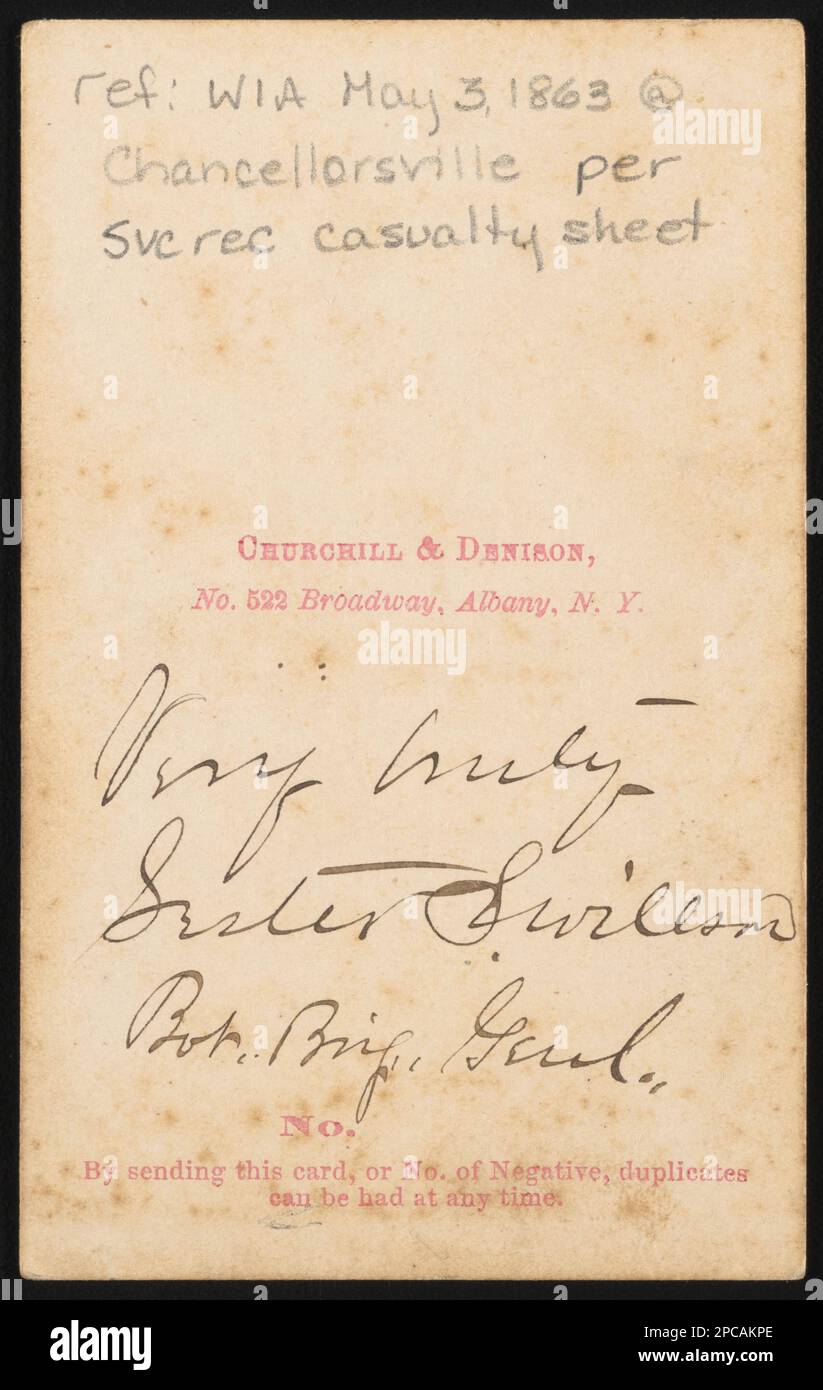 ref: WIA May 3, 1863 @
Chancellorsville per
Svc rec casualty sheet
CHURCHILL & DENISON,
No. 522 Broadway, Albany, N. Y.
Very truly
Lester S. Willson
Bvt. Brig. Genl.
No.
By sending this card, or No. of Negative, duplicates
can be had at any time.
alamy
alamy
Image ID: 2PCAKPE
www.alamy.com